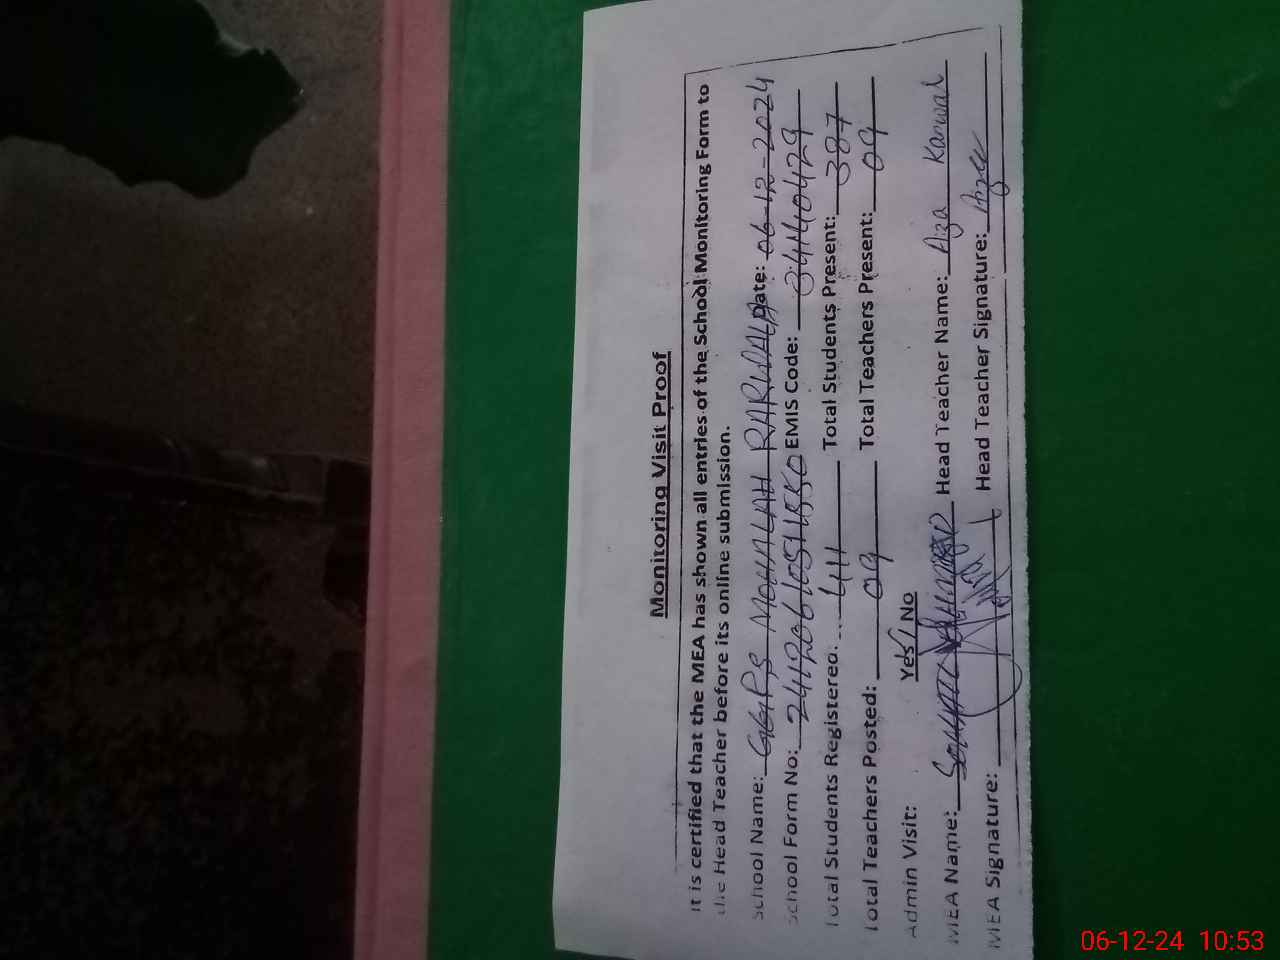 Monitoring Visit Proof
It is certified that the MEA has shown all entries of the School Monitoring Form to
the Head Teacher before its online submission.
School Name: GGPS Date: 06-12-2024
School Form No: EMIS Code: 34140429
Total Students Registered: 411 Total Students Present: 387
Total Teachers Posted: 09 Total Teachers Present: 09
Admin Visit: Yes / No
MEA Name: Head Teacher Name: Aiza Kanwal
MEA Signature: Head Teacher Signature:
06-12-24 10:53